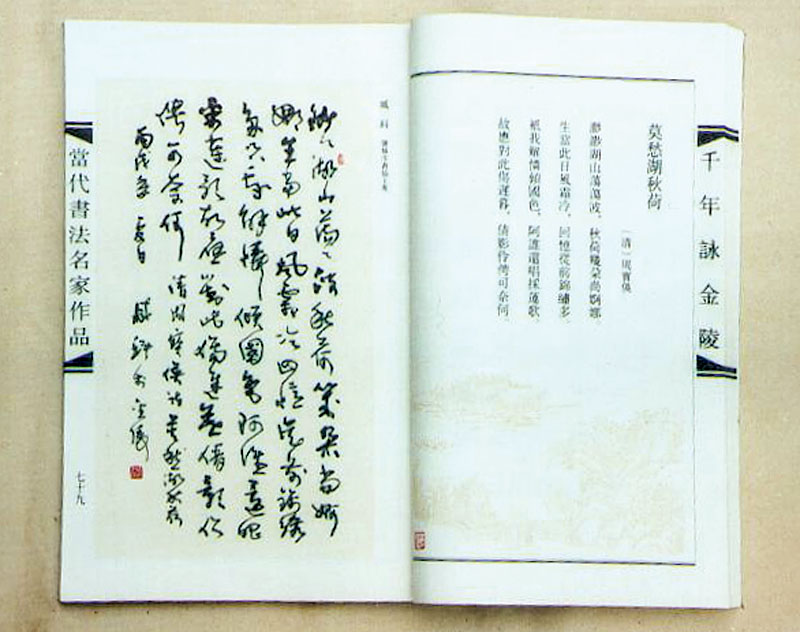 千年詠金陵
莫愁湖秋荷
〔清〕周寶偀
渺渺湖山蕩蕩波，秋荷 朵尚婀娜。
生當此日風霜冷，回憶從前錦繡多。
祇我解憐傾國色，阿誰還唱採蓮歌。
故應對此傷遲暮，倩影伶俜可奈何。
湖山蕩々波秋荷 朵尚婀
娜生當此日風霜冷回憶從前錦繡
多 我解憐傾國色阿誰還唱
采蓮歌故應對此傷遲暮倩影伶
俜可奈何 清周寶偀詩莫愁湖秋荷
丙戌年夏日
當代書法名家作品
七十九